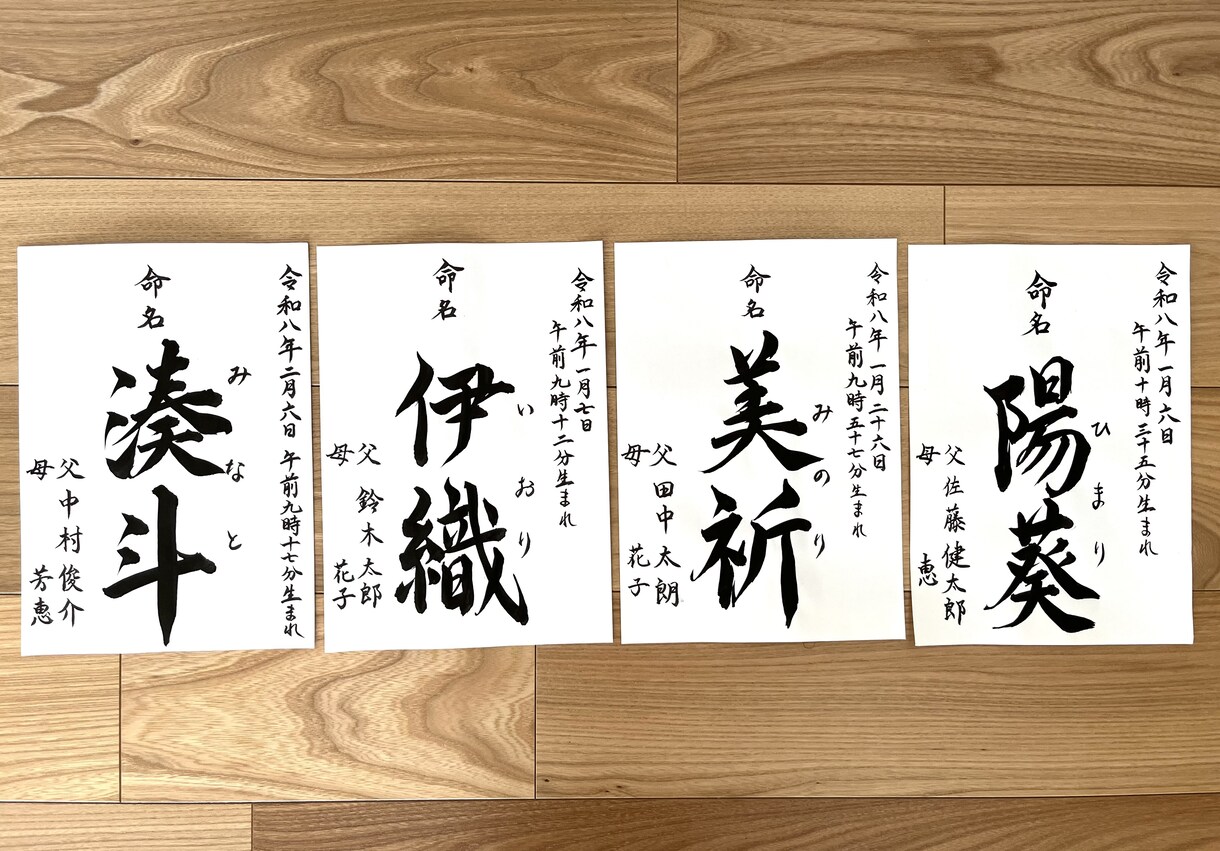 令和八年一月六日
午前十時三十五分生まれ
命名
陽葵
ひまり
父 佐藤健太郎
母 恵
令和八年一月二十六日
午前九時五十七分生まれ
命名
美祈
みのり
父 田中太朗
母 花子
令和八年一月七日
午前九時十二分生まれ
命名
伊織
いおり
父 鈴木太郎
母 花子
令和八年二月六日 午前九時十七分生まれ
命名
湊斗
みなと
父 中村俊介
母 芳恵